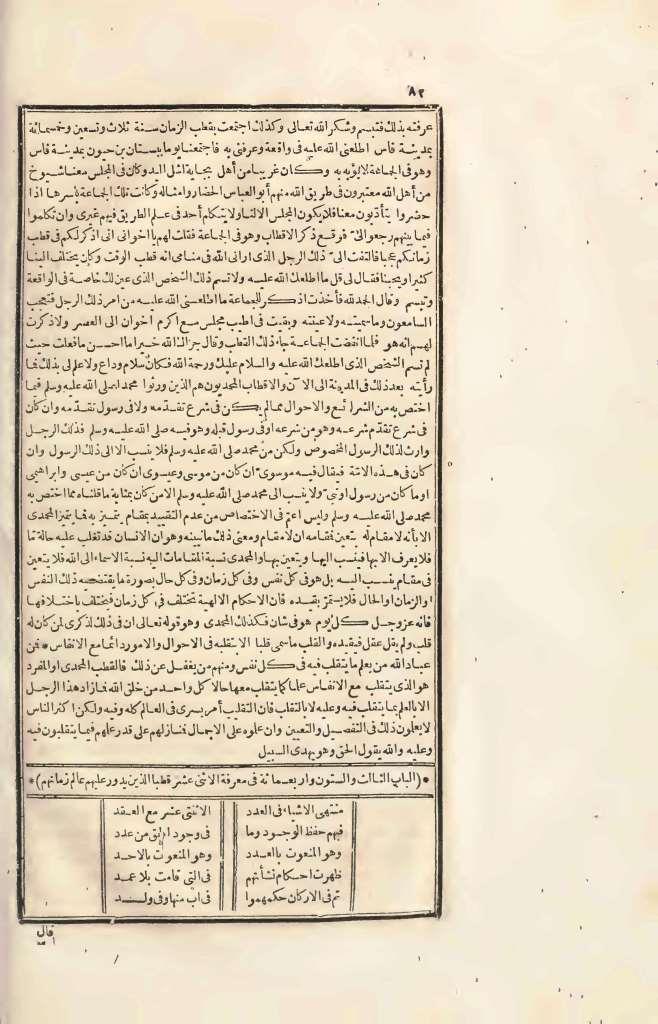 ٨٢
عرفته بذلك فتبسم وشكر الله تعالى وكذلك اجتمعت بقطب الزمان سنة ثلاث وتسعين وخمسمائة
بمدينة فاس اطلعنى الله عليه فى واقعة وعرفنى به فاجتمعنا يوما ببستان بن حيون بمدينة فاس
وهو فى الجماعة لا يؤبه به وكان غريبا من أهل بجاية اشل اليد وكان فى المجلس معنا شيوخ
من أهل الله معتبرون فى طريق الله منهم أبو العباس الحضار وامثاله وكانت تلك الجماعة بأسرها اذا
حضروا يتأدبون معنا فلا يكون المجلس الا لنا ولا يتكلم أحد فى علم الطريق فيهم غيرى وان تكلموا
فيما بينهم رجعوا الىّ فوقع ذكر الاقطاب وهو فى الجماعة فقلت لهم يا اخوانى انى اذكر لكم فى قطب
زمانكم عجبا فالتفت الىّ ذلك الرجل الذى ارانى الله فى منامى انه قطب الوقت وكان يختلف الينا
كثيرا ويحبنا فقال لى قل ما اطلعك الله عليه ولا تسم ذلك الشخص الذى عين لك خاصة فى الواقعة
وتبسم وقال الحمد لله فأخذت اذكر للجماعة ما اطلعنى الله عليه من امر ذلك الرجل فتعجب
السامعون وما سميته ولا عينته وبقيت فى اطيب مجلس مع اكرم اخوان الى العصر ولا ذكرت
لهم انه هو فلما انفضت الجماعة جاء ذلك القطب وقال جزاك الله خيرا ما احسن ما فعلت حيث
لم تسم الشخص الذى اطلعك الله عليه والسلام عليك ورحمة الله فكان سلام وداع ولا علم لى بذلك فما
رأيته بعد ذلك فى المدينة الى الآن والاقطاب المحمديون هم الذين ورثوا محمدا صلى الله عليه وسلم فيما
اختص به من الشرائع والاحوال مما لم يكن فى شرع تقدمه ولا فى رسول تقدمه وان كان
فى شرع تقدم شرعه وهو من شرعه أو فى رسول قبله وهو فيه صلى الله عليه وسلم فذلك الرجل
وارث لذلك الرسول المخصوص ولكن من محمد صلى الله عليه وسلم فلا ينسب الا الى ذلك الرسول وان
كان فى هذه الامة فيقال فيه موسوىّ ان كان من موسى وعيسوى ان كان من عيسى وابراهيمى
اوما كان من رسول أو نبىّ ولا ينسب الى محمد صلى الله عليه وسلم الا من كان بمثابة ما قلناه مما اختص به
محمد صلى الله عليه وسلم وليس اعم فى الاختصاص من عدم التقييد بمقام يتميز به فما يتميز المحمدى
الا بأنه لا مقام له يتعين فمقامه ان لا مقام ومعنى ذلك ما نبينه وهو ان الانسان قد تغلب عليه حالة ما
فلا يعرف الا بها فينسب اليها ويتعين بها والمحمدى نسبة المقامات اليه نسبة الاسماء الى الله فلا يتعين
فى مقام ينسب اليه بل هو فى كل نفس وفى كل زمان وفى كل حال بصورة ما يقتضيه ذلك النفس
والزمان والحال فلا يستمر تقيده فان الاحكام الالهية تختلف فى كل زمان فيختلف باختلافها
فانه عز وجل كل يوم هو فى شان فكذلك المحمدى وهو قوله تعالى ان فى ذلك لذكرى لمن كان له
قلب ولم يقل عقل فيقيده والقلب ما سمى قلبا الا بتقلبه فى الاحوال والامور دائما مع الانفاس * فمن
عباد الله من يعلم ما يتقلب فيه فى كل نفس ومنهم من يغفل عن ذلك فالقطب المحمدى او المفرد
هو الذى يتقلب مع الانفاس علما كما يتقلب معها حالا كل واحد من خلق الله فما زاد هذا الرجل
الا بالعلم بما يتقلب فيه وعليه لا بالتقلب فان التقليب أمر يسرى فى العالم كله وفيه ولكن اكثر الناس
لا يعلمون ذلك فى التفصيل والتعيين وان علموه على الاجمال فنازلهم على قدر علمهم فيما يتقلبون فيه
وعليه والله يقول الحق وهو يهدى السبيل
* (الباب الثالث والستون واربعمائة فى معرفة الاثنى عشر قطبا الذين يدور عليهم عالم زمانهم) *
منتهى الاشياء فى العدد الاثنتى عشر مع العقد
فيهم حفظ الوجود وما فى وجود الحق من عدد
وهو المنعوت بالعدد وهو المنعوت بالاحد
ظهرت احكام نشأتهم فى التى قامت بلا عمد
ثم فى الاركان حكمهموا فى اب منها وفى ولد
قال